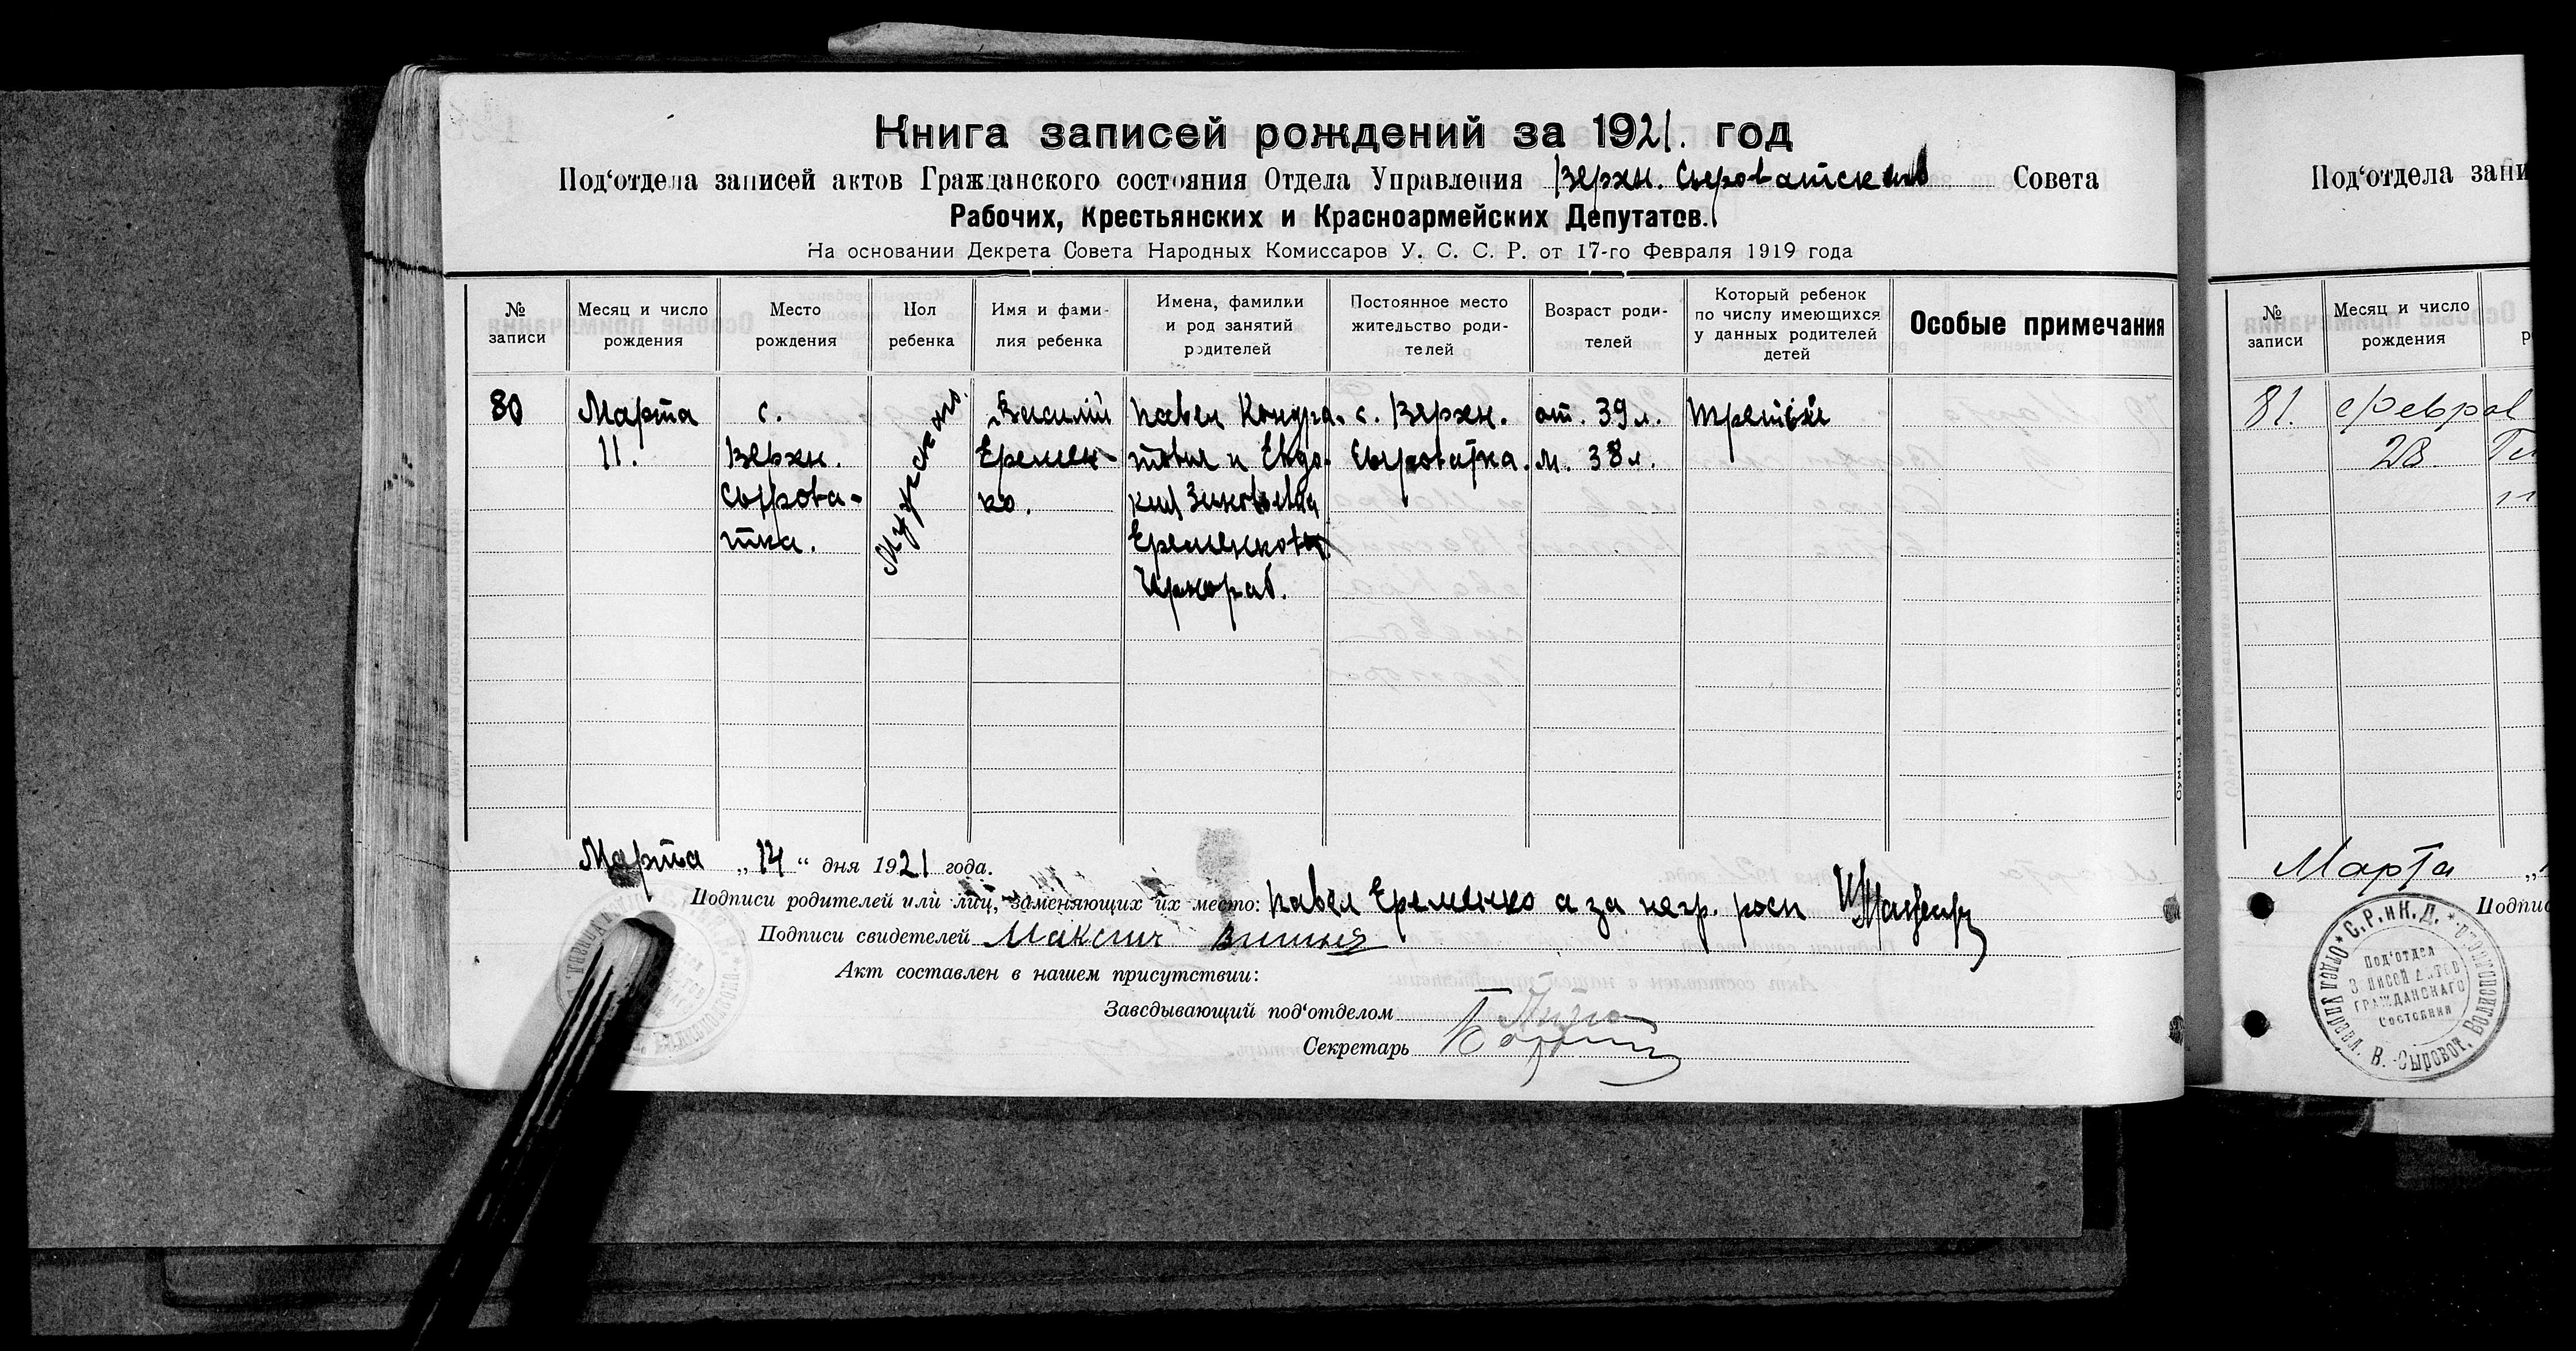 Книга записей рождений за 1921. год
Под‘отдела записей актов Гражданского состояния Отдела Управления Верхн. Сыроватского Совета
Рабочих, Крестьянских и Красноармейских Депутатов.
На основании Декрета Совета Народных Комиссаров У. С. С. Р. от 17-го Февраля 1919 года
№ записи
Месяц и число рождения
Место рождения
Пол ребенка
Имя и фами-
лия ребенка
Имена, фамилии
и род занятий
родителей
Постоянное место
жительство роди-
телей
Возраст роди-
телей
Который ребенок
по числу имеющихся
у данных родителей
детей
Особые примечания
80
Марта
11.
с.
Верхн.
Сырова-
тка.
Мужского.
Василий
Еремен-
ко.
Павел Кондра-
товия и Евдо-
кия Зиновьевна
Еременкова
Чернораб.
с. Верхн.
Сыроватка.
от. 39 л.
м. 38 л.
третий
Сумы, 1-ая Советская типография
Марта „14“ дня 1921 года.
Подписи родителей или лиц, заменяющих их место: Павел Еременко а за негр. росп
Подписи свидетелей Максим
Акт составлен в нашем присутствии:
Заведывающий под‘отделом
Секретарь
Под‘отдела запи
№ записи
Месяц и число рождения
81.
феврал
28.
Марта „
Подпис
С.Р.иК.Д. * Волисполкома * В.-Сыроват. * Отдел Управл.
Под‘отдел
Записей Актов
Гражданскаго
Состояния